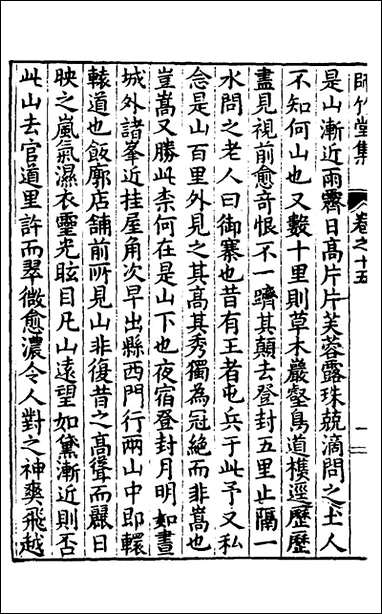 師竹堂集
卷之十五
十二
是山漸近雨霽日高片片芙蓉露珠兢滴問之土人
不知何山也又數十里則草木巖壑鳥道樵逕歷歷
盡見視前愈奇恨不一躋其顛去登封五里止隔一
水問之老人曰御寨也昔有王者屯兵于此予又私
念是山百里外見之其高其秀獨為冠絕而非嵩也
豈嵩又勝此柰何在是山下也夜宿登封月明如晝
城外諸峯近挂屋角次早出縣西門行兩山中即轘
轅道也飯廓店舖前所見山非復昔之高聳而麗日
映之嵐氣濕衣靈光眩目凡山遠望如黛漸近則否
此山去官道里許而翠微愈濃令人對之神爽飛越